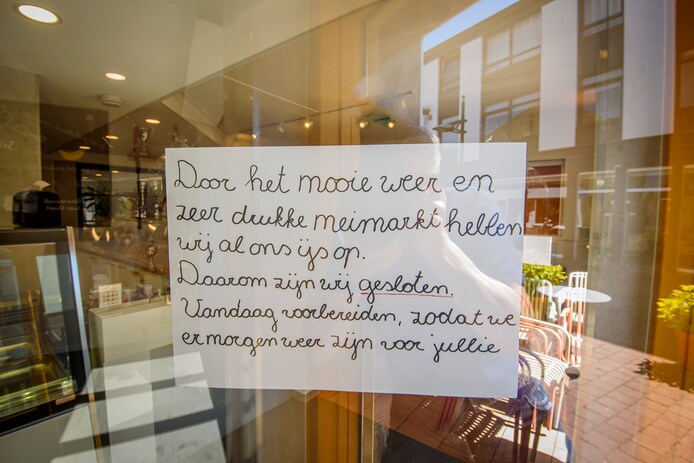 Door het mooie weer en
zeer drukke meimarkt hebben
wij al ons ijs op.
Daarom zijn wij gesloten.
Vandaag voorbereiden, zodat we
er morgen weer zijn voor jullie